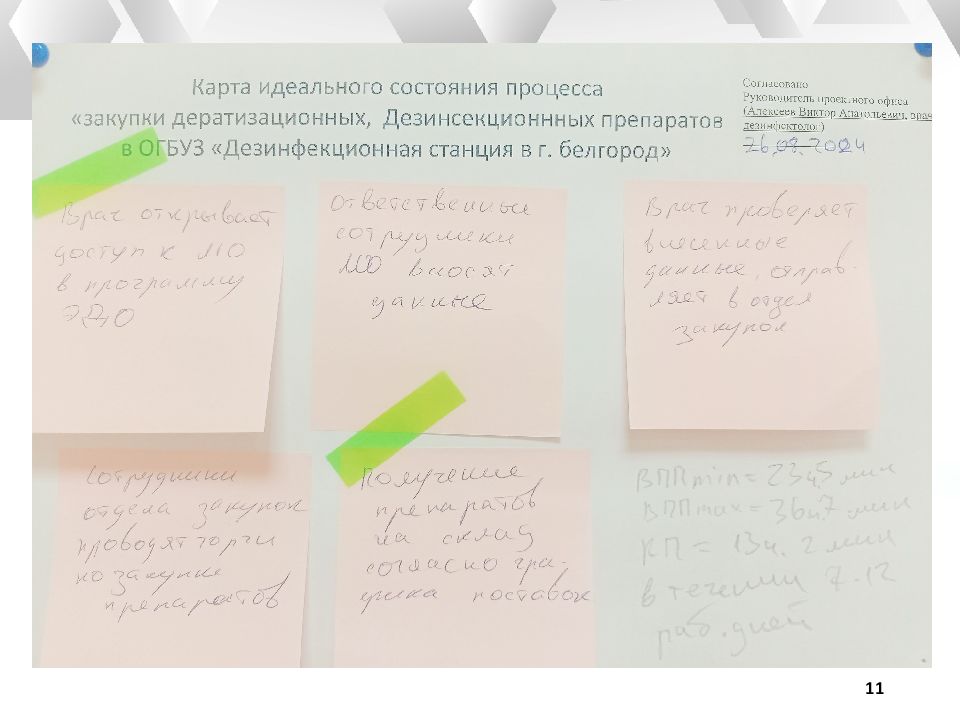 Карта идеального состояния процесса
«закупки дератизационных, Дезинсекционнных препаратов
в ОГБУЗ «Дезинфекционная станция в г. белгород»
Согласовано
Руководитель проектного офиса
(Алексеев Виктор Анатольевич, врач
дезинфектолог)
26.08.2024
Врач открывает
доступ к МО
в программу
ЭДО
Ответственные
сотрудники
МО вносят
данные
Врач проверяет
внесенные
данные, отправ-
ляет в отдел
закупок
Сотрудники
отдела закупок
проводят торги
по закупке
препаратов
Получение
препаратов
на склад
согласно гра-
фика поставок
ВПП min = 23ч,5 мин
ВПП max = 36ч.7 мин
КП = 13ч. 2 мин
в течении 7-12
раб. дней
11